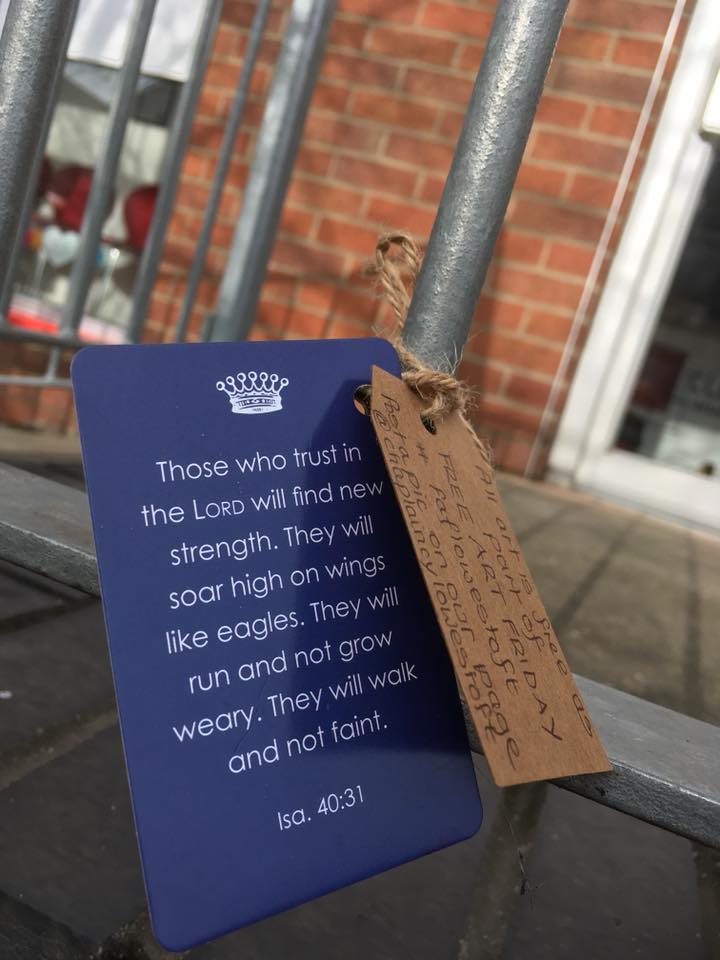 Those who trust in
the LORD will find new
strength. They will
soar high on wings
like eagles. They will
run and not grow
weary. They will walk
and not faint.
Isa. 40:31
All art is free as
part of
FREE ART FRIDAY
# faflowestoft
Post a pic on our page
@chaplaincylowestoft